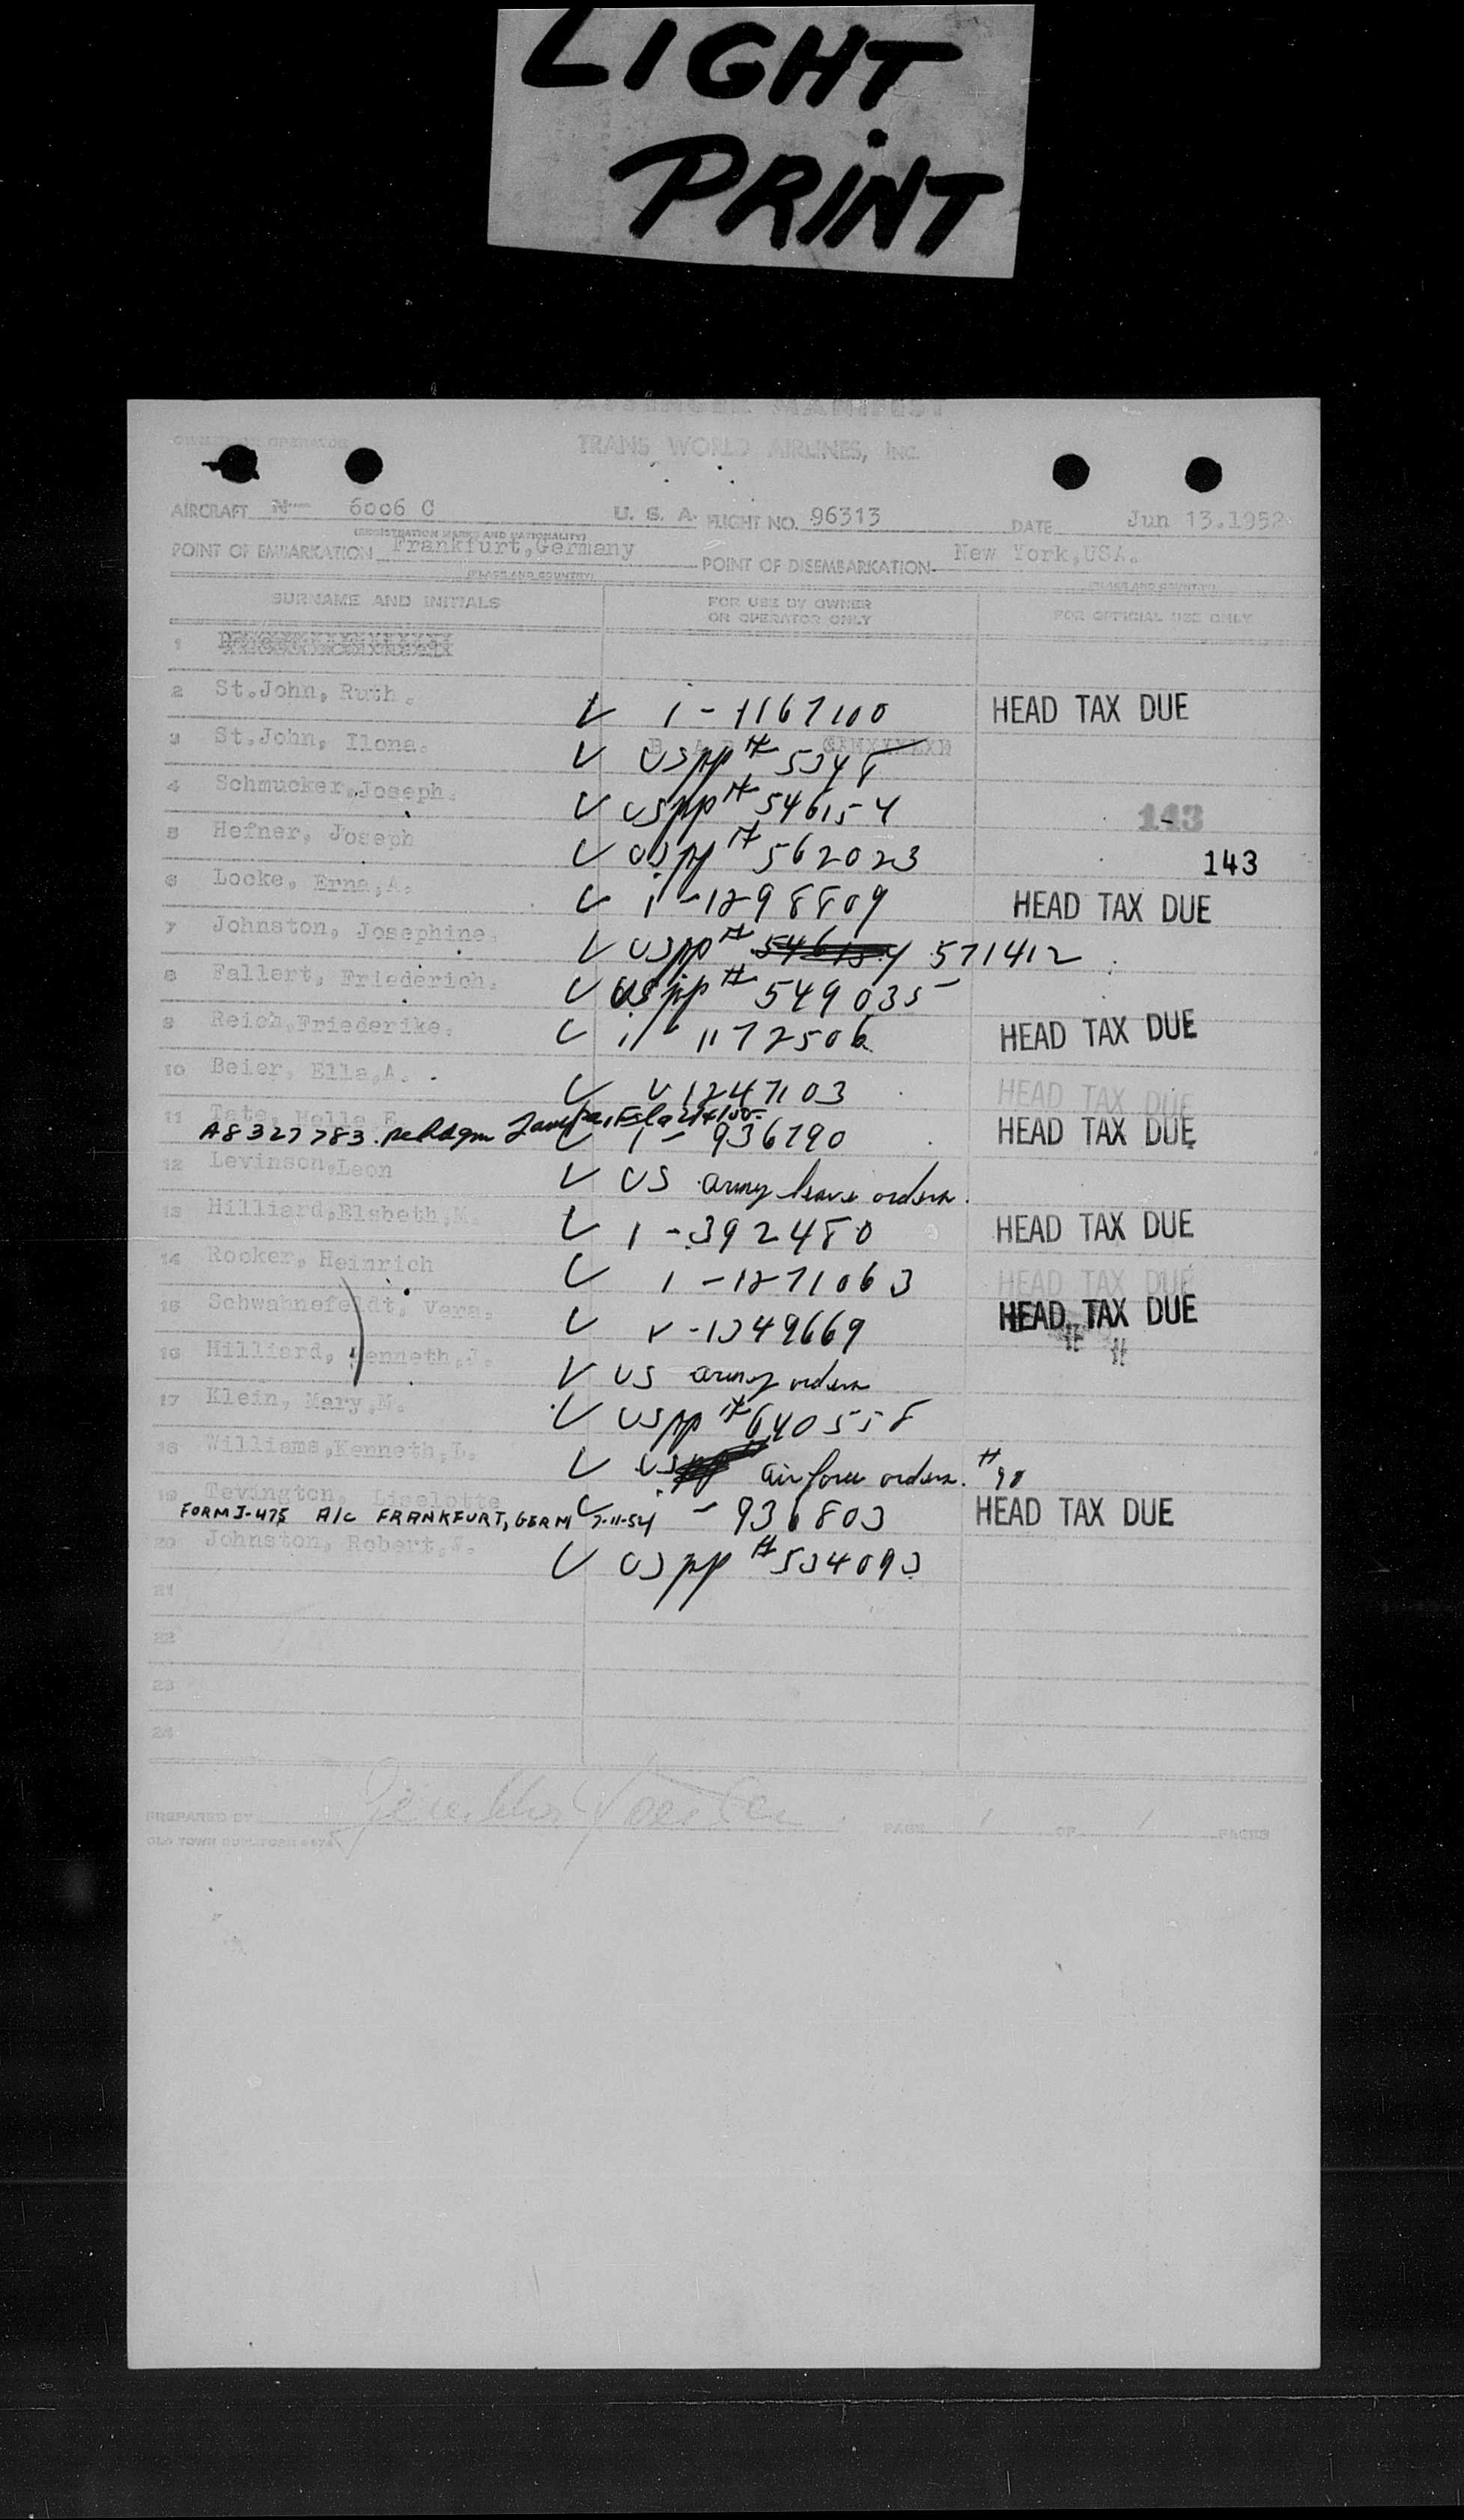 LIGHT
PRINT
PASSENGER MANIFEST
OWNER OR OPERATOR
TRANS WORLD AIRLINES, INC.
AIRCRAFT N-- 6006 C U. S. A. FLIGHT NO. 96313 DATE Jun 13.1952
(REGISTRATION MARKS AND NATIONALITY)
POINT OF EMBARKATION Frankfurt,Germany POINT OF DISEMBARKATION New York,USA.
(PLACE AND COUNTRY) (PLACE AND COUNTRY)
SURNAME AND INITIALS FOR USE BY OWNER OR OPERATOR ONLY FOR OFFICIAL USE ONLY
1
2 St.John, Ruth. V 1-1167100 HEAD TAX DUE
3 St.John, Ilona. V USpp#
4 Schmucker,Joseph. V USpp# 546154 143
5 Hefner, Joseph V USpp# 562023 143
6 Locke, Erna,A. V 1-1298809 HEAD TAX DUE
7 Johnston, Josephine. V USpp# 546154 571412
8 Fallert, Friederich. V USpp# 549035
9 Reich,Friederike. V 1172506 HEAD TAX DUE
10 Beier, Ella,A. V V1247103 HEAD TAX DUE
11 Tate, Helle
A8327783 V 1-936790 HEAD TAX DUE
12 Levinson,Leon V US army leave orders.
13 Hilliard,Elsbeth,M. V 1-392480 HEAD TAX DUE
14 Rocker, Heinrich V 1-1271063 HEAD TAX DUE
15 Schwahnefeldt, Vera. V V-1349669 HEAD TAX DUE
16 Hilliard, Kenneth,J. V US army orders
17 Klein, Mary,M. V USpp# 640558
18 Williams,Kenneth,L. V US air force orders. #98
19 Tevington, Liselotte
FORM I-475 A/C FRANKFURT, GERM 7-11-54 V 1-936803 HEAD TAX DUE
20 Johnston, Robert, V USpp# 534093
21
22
23
24
PREPARED BY PAGE 1 OF 1 PAGES
OLD TOWN